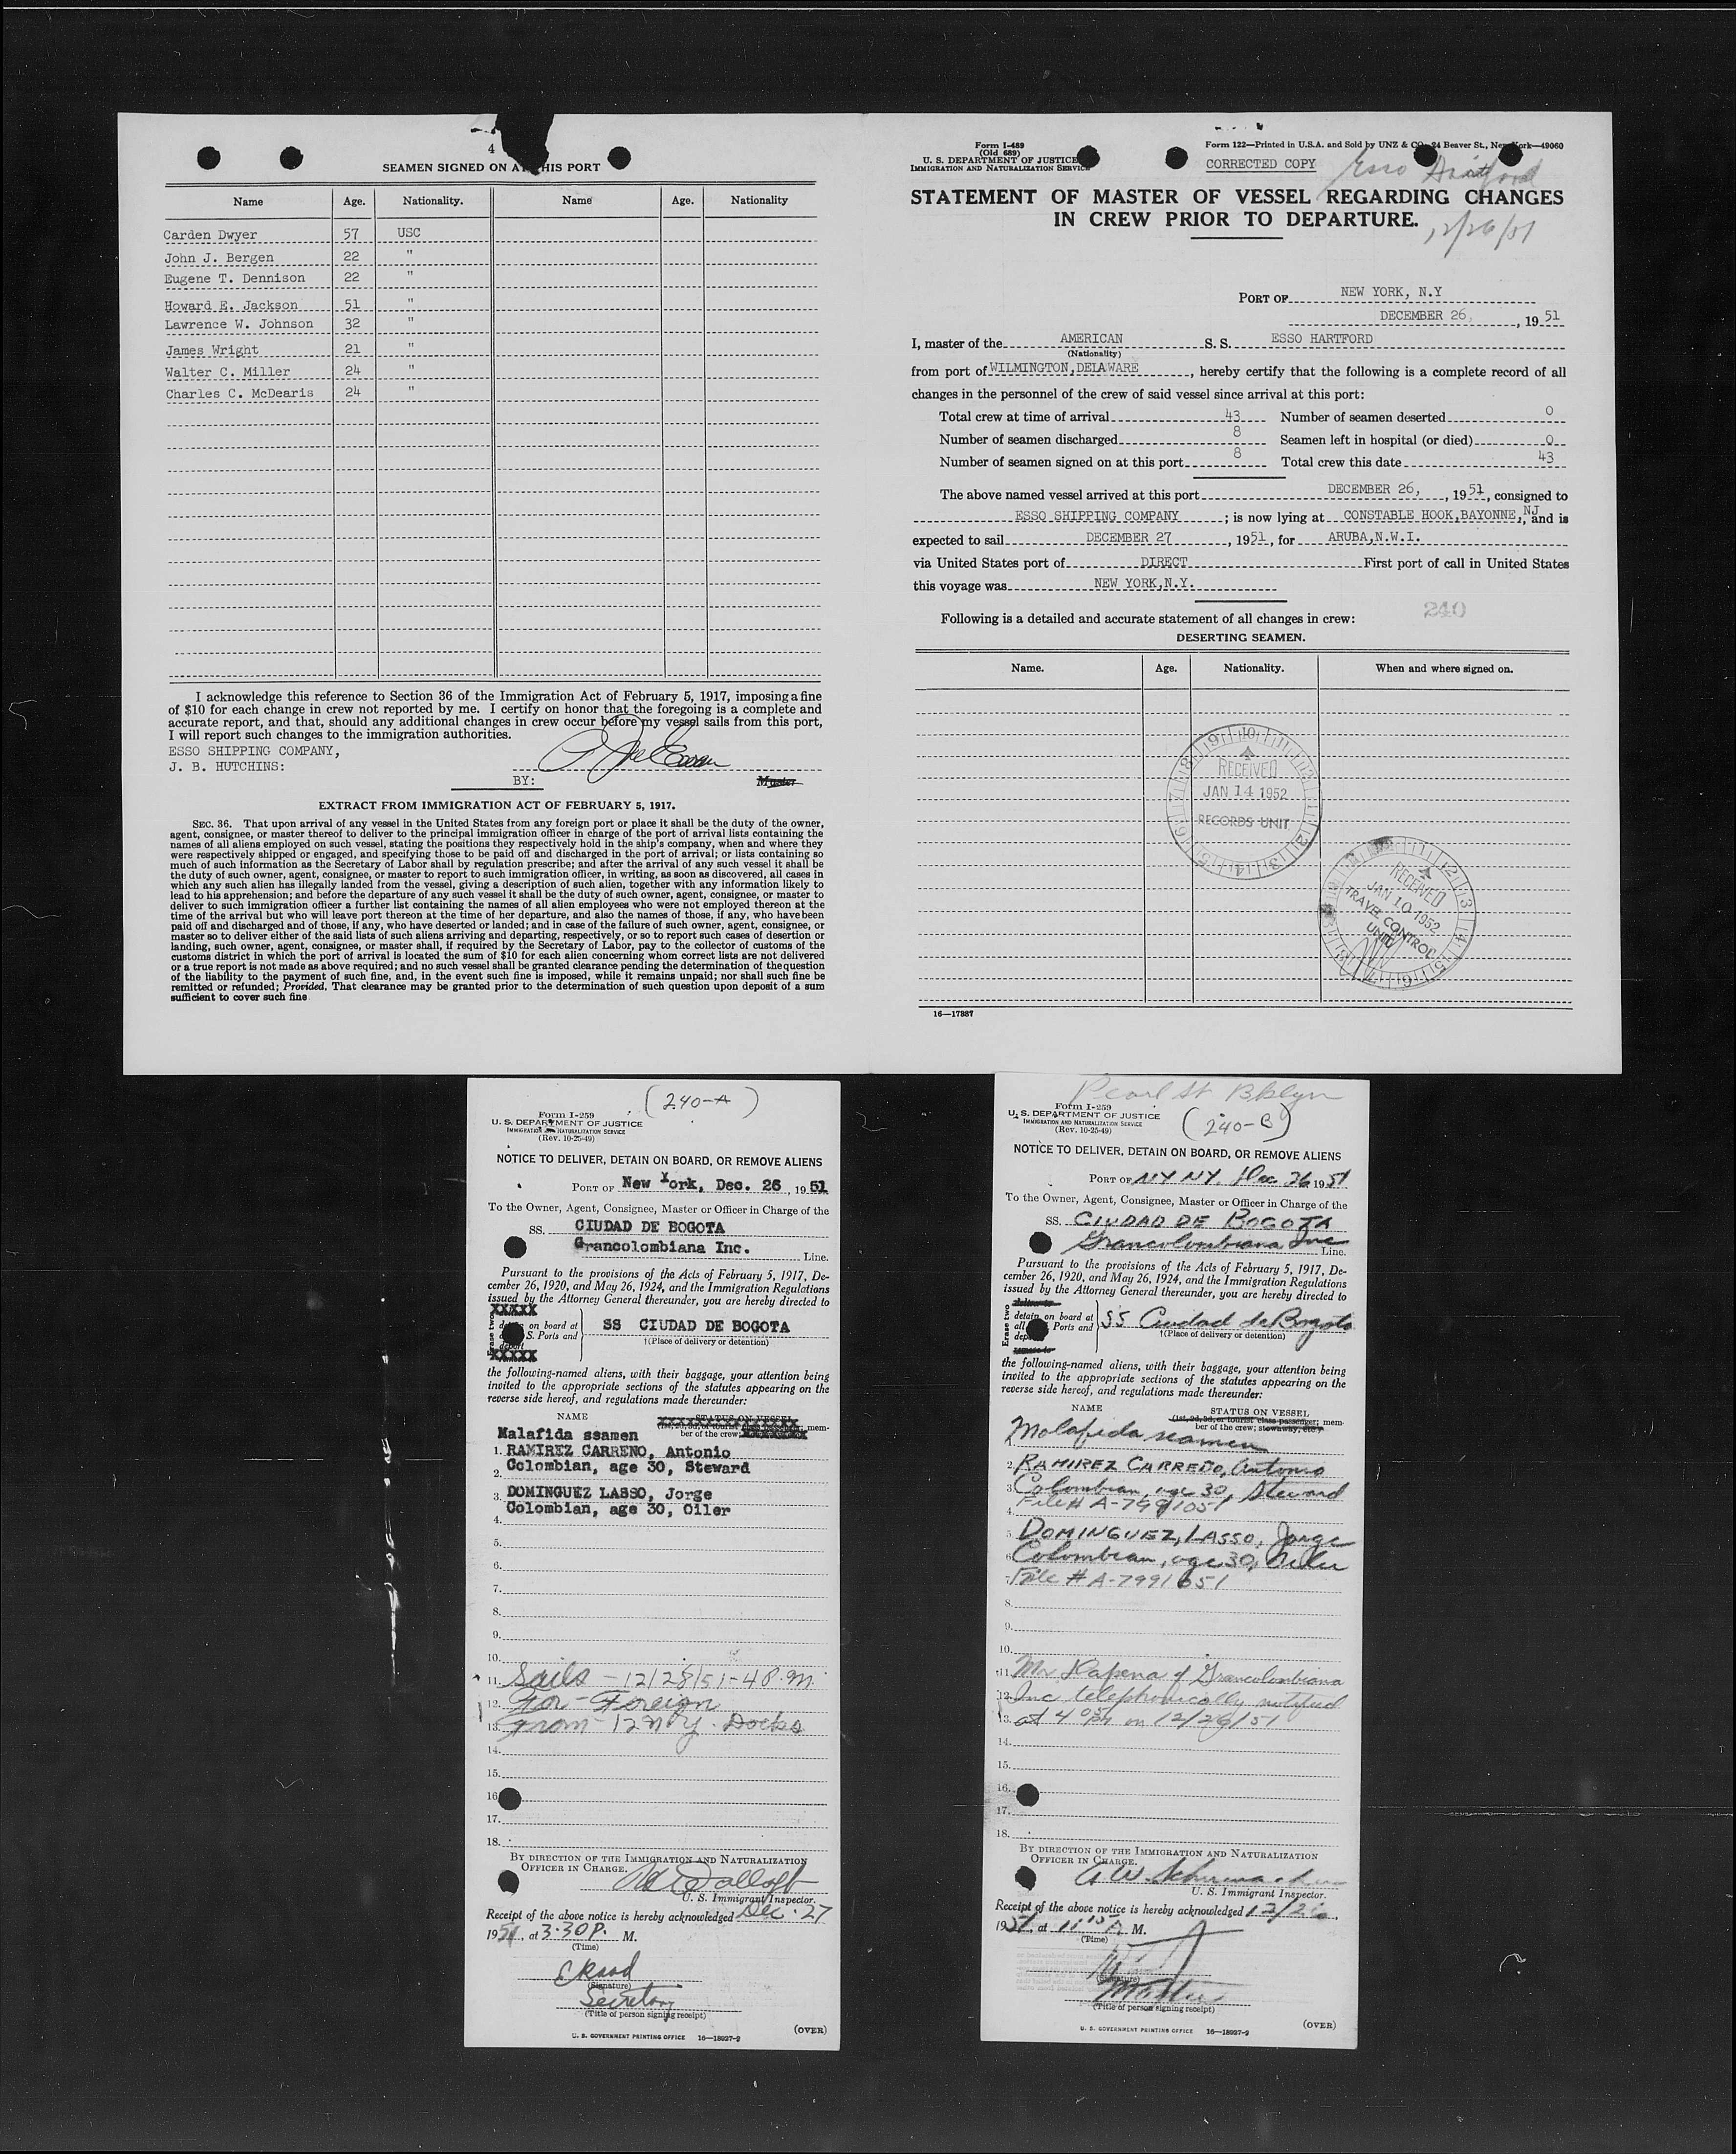 4
SEAMEN SIGNED ON AT THIS PORT
Name Age. Nationality. Name Age. Nationality
Carden Dwyer 57 USC
John J. Bergen 22 "
Eugene T. Dennison 22 "
Howard E. Jackson 51 "
Lawrence W. Johnson 32 "
James Wright 21 "
Walter C. Miller 24 "
Charles C. McDearis 24 "
I acknowledge this reference to Section 36 of the Immigration Act of February 5, 1917, imposing a fine
of $10 for each change in crew not reported by me. I certify on honor that the foregoing is a complete and
accurate report, and that, should any additional changes in crew occur before my vessel sails from this port,
I will report such changes to the immigration authorities.
ESSO SHIPPING COMPANY,
J. B. HUTCHINS:
BY: Master
EXTRACT FROM IMMIGRATION ACT OF FEBRUARY 5, 1917.
SEC. 36. That upon arrival of any vessel in the United States from any foreign port or place it shall be the duty of the owner,
agent, consignee, or master thereof to deliver to the principal immigration officer in charge of the port of arrival lists containing the
names of all aliens employed on such vessel, stating the positions they respectively hold in the ship's company, when and where they
were respectively shipped or engaged, and specifying those to be paid off and discharged in the port of arrival; or lists containing so
much of such information as the Secretary of Labor shall by regulation prescribe; and after the arrival of any such vessel it shall be
the duty of such owner, agent, consignee, or master to report to such immigration officer, in writing, as soon as discovered, all cases in
which any such alien has illegally landed from the vessel, giving a description of such alien, together with any information likely to
lead to his apprehension; and before the departure of any such vessel it shall be the duty of such owner, agent, consignee, or master to
deliver to such immigration officer a further list containing the names of all alien employees who were not employed thereon at the
time of the arrival but who will leave port thereon at the time of her departure, and also the names of those, if any, who have been
paid off and discharged and of those, if any, who have deserted or landed; and in case of the failure of such owner, agent, consignee, or
master so to deliver either of the said lists of such aliens arriving and departing, respectively, or so to report such cases of desertion or
landing, such owner, agent, consignee, or master shall, if required by the Secretary of Labor, pay to the collector of customs of the
customs district in which the port of arrival is located the sum of $10 for each alien concerning whom correct lists are not delivered
or a true report is not made as above required; and no such vessel shall be granted clearance pending the determination of the question
of the liability to the payment of such fine, and, in the event such fine is imposed, while it remains unpaid; nor shall such fine be
remitted or refunded; Provided, That clearance may be granted prior to the determination of such question upon deposit of a sum
sufficient to cover such fine
Form I-489
(Old 689)
U. S. DEPARTMENT OF JUSTICE
IMMIGRATION AND NATURALIZATION SERVICE
Form 122—Printed in U.S.A. and Sold by UNZ & CO., 24 Beaver St., New York—49060
CORRECTED COPY
Esso Hartford
STATEMENT OF MASTER OF VESSEL REGARDING CHANGES
IN CREW PRIOR TO DEPARTURE.
12/26/51
PORT OF NEW YORK, N.Y
DECEMBER 26, , 19 51
I, master of the AMERICAN S. S. ESSO HARTFORD
(Nationality)
from port of WILMINGTON,DELAWARE , hereby certify that the following is a complete record of all
changes in the personnel of the crew of said vessel since arrival at this port:
Total crew at time of arrival 43 Number of seamen deserted 0
Number of seamen discharged 8 Seamen left in hospital (or died) 0
Number of seamen signed on at this port 8 Total crew this date 43
The above named vessel arrived at this port DECEMBER 26, , 19 51, consigned to
ESSO SHIPPING COMPANY ; is now lying at CONSTABLE HOOK,BAYONNE, NJ and is
expected to sail DECEMBER 27 , 19 51, for ARUBA,N.W.I.
via United States port of DIRECT First port of call in United States
this voyage was NEW YORK,N.Y.
240
Following is a detailed and accurate statement of all changes in crew:
DESERTING SEAMEN.
Name. Age. Nationality. When and where signed on.
RECEIVED
JAN 14 1952
RECORDS UNIT
RECEIVED
JAN 10 1952
TRAVEL CONTROL
UNIT
16—17887
(240-A)
Form I-259
U. S. DEPARTMENT OF JUSTICE
IMMIGRATION AND NATURALIZATION SERVICE
(Rev. 10-25-49)
NOTICE TO DELIVER, DETAIN ON BOARD, OR REMOVE ALIENS
PORT OF New York, Dec. 26 , 19 51
To the Owner, Agent, Consignee, Master or Officer in Charge of the
SS. CIUDAD DE BOGOTA
Grancolombiana Inc. Line.
Pursuant to the provisions of the Acts of February 5, 1917, De-
cember 26, 1920, and May 26, 1924, and the Immigration Regulations
issued by the Attorney General thereunder, you are hereby directed to
XXXXX
on board at SS CIUDAD DE BOGOTA
S. Ports and †(Place of delivery or detention)
depart
XXXXX
the following-named aliens, with their baggage, your attention being
invited to the appropriate sections of the statutes appearing on the
reverse side hereof, and regulations made thereunder:
NAME STATUS ON VESSEL
mem-
ber of the crew;
Malafida ssamen
1. RAMIREZ CARRENO, Antonio
2. Colombian, age 30, Steward
3. DOMINGUEZ LASSO, Jorge
4. Colombian, age 30, Oiler
5.
6.
7.
8.
9.
10.
11. Sails - 12/28/51 - 4 P.m.
12. For - Foreign
13. From - 12 N Y. Docks
14.
15.
16.
17.
18.
BY DIRECTION OF THE IMMIGRATION AND NATURALIZATION
OFFICER IN CHARGE.
U. S. Immigrant Inspector.
Receipt of the above notice is hereby acknowledged Dec. 27
19 51, at 3:30 P. M.
(Time)
(Signature)
Secretary
(Title of person signing receipt)
(OVER)
U. S. GOVERNMENT PRINTING OFFICE 16—18927-2
Pearl St Bklyn
Form I-259
U. S. DEPARTMENT OF JUSTICE
IMMIGRATION AND NATURALIZATION SERVICE
(Rev. 10-25-49)
(240-B)
NOTICE TO DELIVER, DETAIN ON BOARD, OR REMOVE ALIENS
PORT OF NY NY. Dec 26 19 51
To the Owner, Agent, Consignee, Master or Officer in Charge of the
SS. CIUDAD DE BOGOTA
Grancolombiana Inc Line.
Pursuant to the provisions of the Acts of February 5, 1917, De-
cember 26, 1920, and May 26, 1924, and the Immigration Regulations
issued by the Attorney General thereunder, you are hereby directed to
Erase two
detain on board at SS Ciudad de Bogota
all Ports and †(Place of delivery or detention)
the following-named aliens, with their baggage, your attention being
invited to the appropriate sections of the statutes appearing on the
reverse side hereof, and regulations made thereunder:
NAME STATUS ON VESSEL
(1st, 2d, 3d, or tourist class passenger; mem-
ber of the crew; stowaway, etc.)
Malafida seamen
2. RAMIREZ CARREÑO, Antonio
3. Colombian, age 30, Steward
File # A-7991051
5. DOMINGUEZ, LASSO, Jorge
6. Colombian, age 30, Oiler
7. File # A-7991651
8.
9.
10.
11. Mr Lapena of Grancolombiana
12. Inc telephonically notified
13. at 4 05 PM on 12/26/51
14.
15.
16.
17.
18.
BY DIRECTION OF THE IMMIGRATION AND NATURALIZATION
OFFICER IN CHARGE.
U. S. Immigrant Inspector.
Receipt of the above notice is hereby acknowledged 12/26,
19 51, at 11 15 A. M.
(Time)
(Signature)
Master
(Title of person signing receipt)
(OVER)
U. S. GOVERNMENT PRINTING OFFICE 16—18927-2